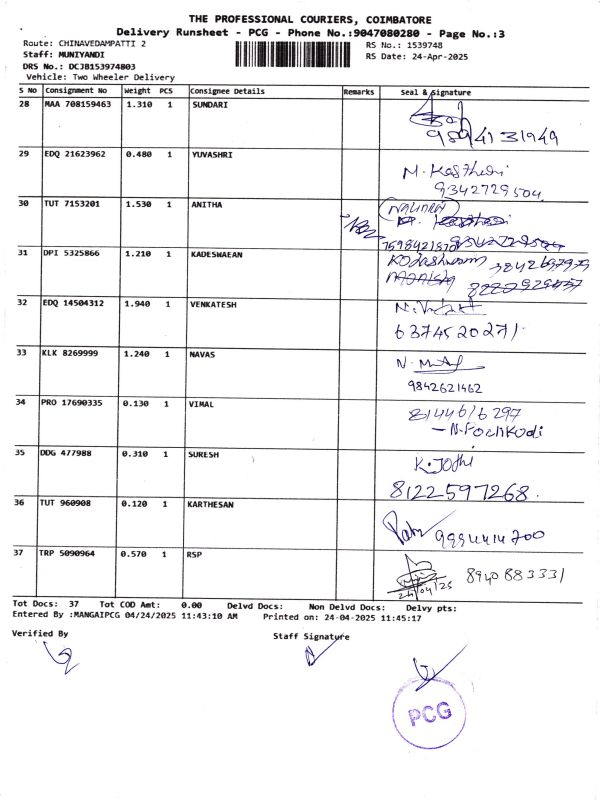 THE PROFESSIONAL COURIERS, COIMBATORE
Delivery Runsheet - PCG - Phone No.:9047080280 - Page No.:3
Route: CHINAVEDAMPATTI 2 RS No.: 1539748
Staff: MUNIYANDI RS Date: 24-Apr-2025
DRS No.: DCJB153974803
Vehicle: Two Wheeler Delivery
S No Consignment No Weight PCS Consignee Details Remarks Seal & Signature
28 MAA 708159463 1.310 1 SUNDARI
9894131949
29 EDQ 21623962 0.480 1 YUVASHRI
M. Kasthuri
9342729504
30 TUT 7153201 1.530 1 ANITHA
31 DPI 5325866 1.210 1 KADESWAEAN
32 EDQ 14504312 1.940 1 VENKATESH
6374520271
33 KLK 8269999 1.240 1 NAVAS
9842621462
34 PRO 17690335 0.130 1 VIMAL
8144616297
35 DDG 477988 0.310 1 SURESH
K. Jothi
8122597268
36 TUT 960908 0.120 1 KARTHESAN
9994414700
37 TRP 5090964 0.570 1 RSP
8940883331
24/04/25
Tot Docs: 37 Tot COD Amt: 0.00 Delvd Docs: Non Delvd Docs: Delvy pts:
Entered By :MANGAIPCG 04/24/2025 11:43:10 AM Printed on: 24-04-2025 11:45:17
Verified By Staff Signature
PCG